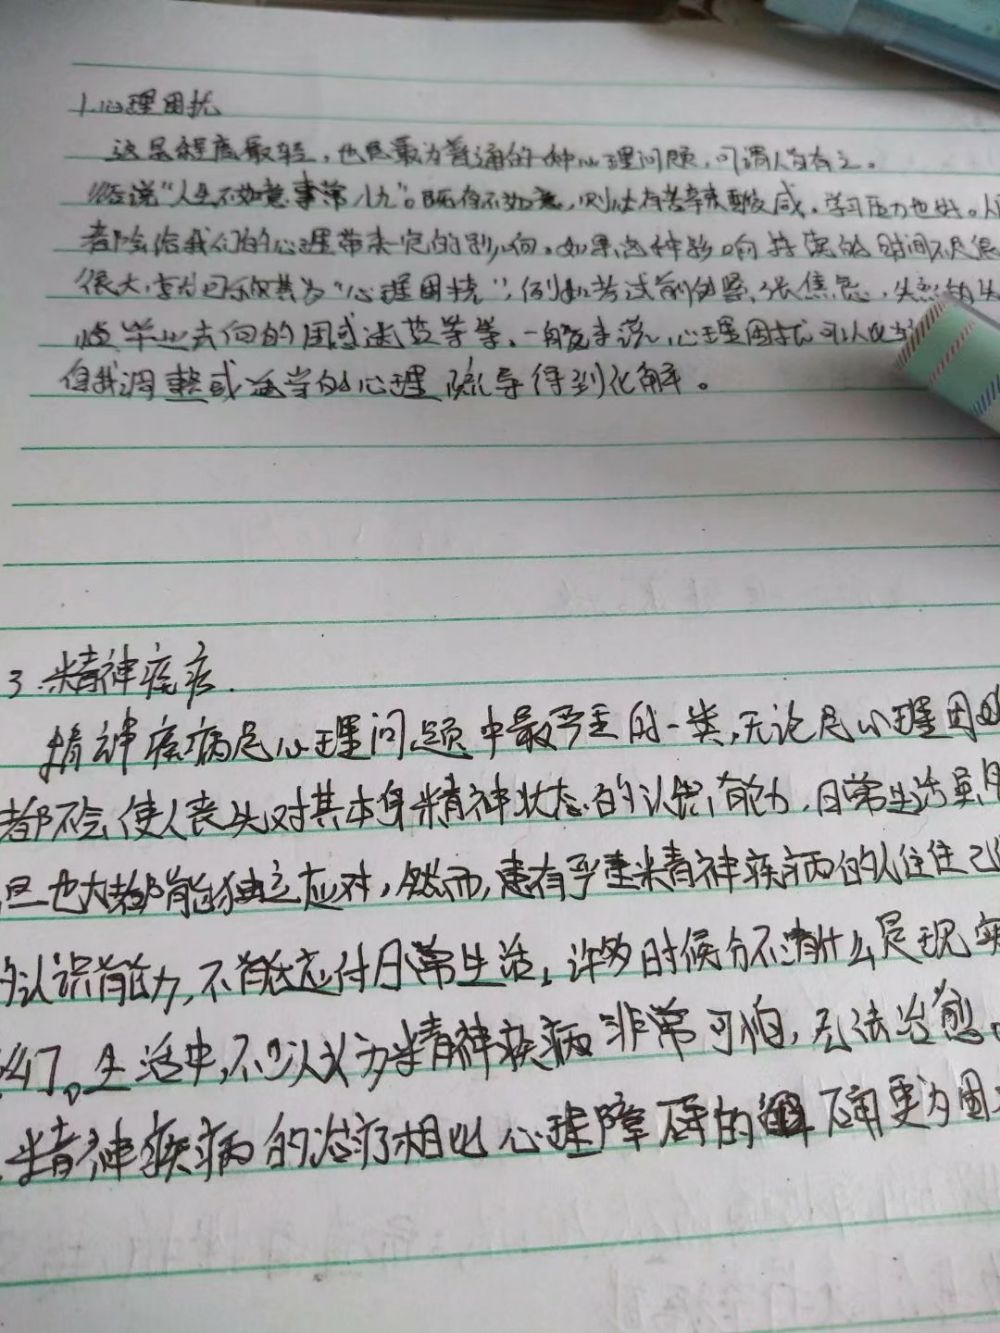 1.心理困扰
这是程度最轻，也是最为普通的一种心理问题，可谓人皆有之。
俗说“人生不如意事常八九”。既有不如意，则必有苦辛酸感，学习压力也好。人
都会给我们的心理带来一定的影响。如果这种影响持续的时间不是很
很大，学为可称其为“心理困扰”，例如考试前的紧张焦虑，失恋的失
毕业去向的困惑迷茫等等，一般来说，心理困扰可以
自我调整或适当的心理疏导得到化解。
3.精神疾病.
精神疾病是心理问题中最严重的一类，无论是心理困
都不会使人丧失对其本身精神状态的认知能力，日常生活虽
但也大都能独立应对，然而，患有严重精神疾病的人往往
的认识能力，不能应付日常生活，许多时候分不清什么是现实
幻。生活中，不少人认为精神疾病非常可怕，无法治愈。
精神疾病的治疗相比心理障碍的 确更为困